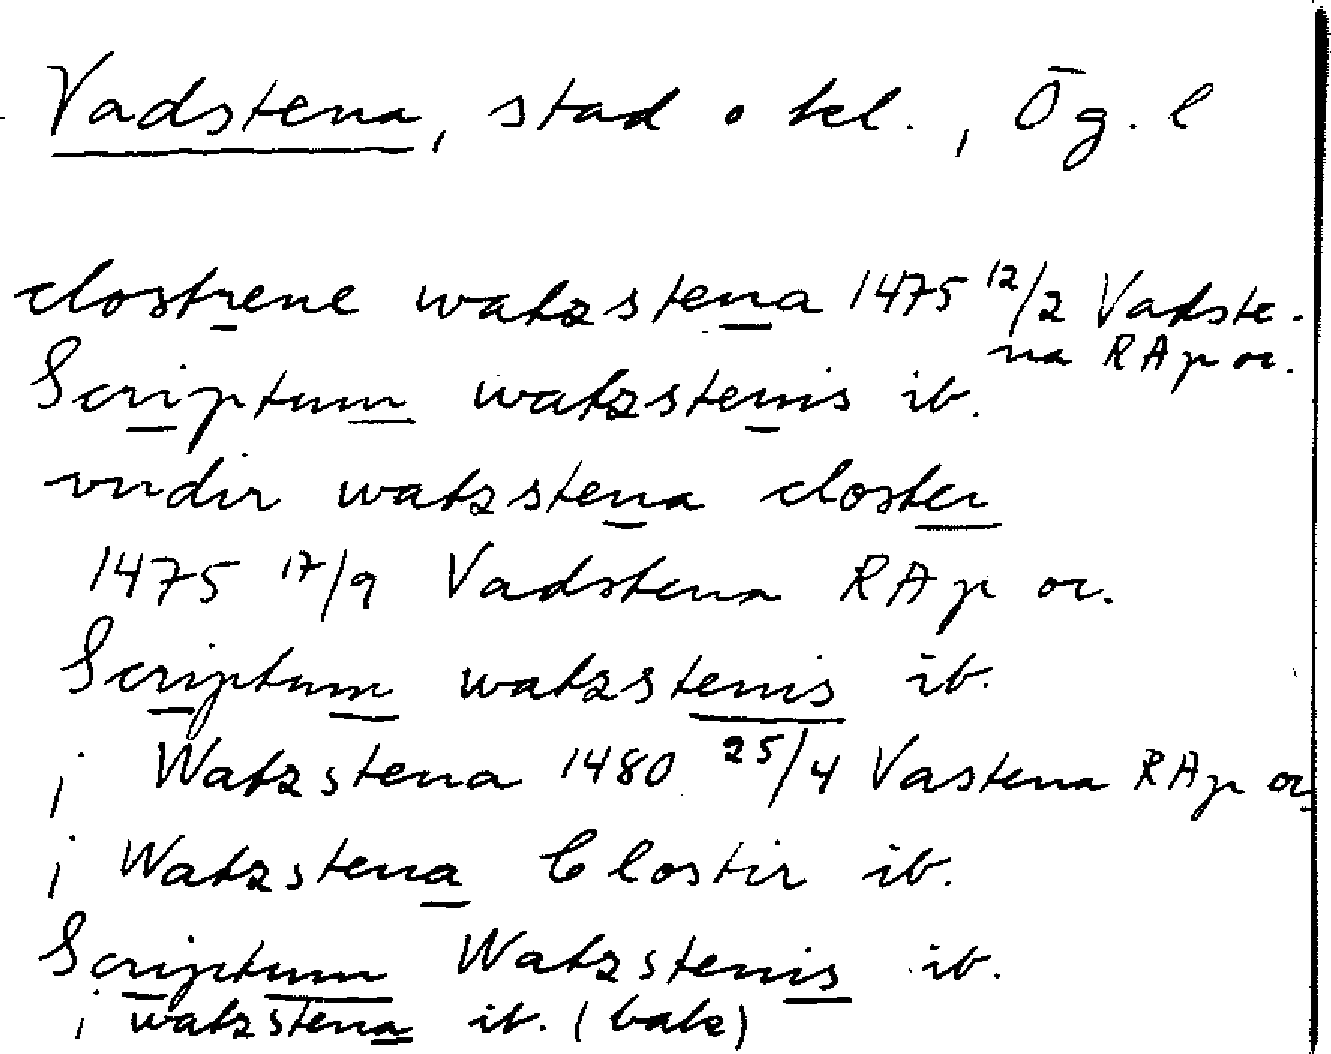 Vadstena, stad o kl., Ög. l
clostrene watzstena 1475 12/2 Vadste-
na RAp or.
Scriptum watzstenis ib.
vndir watzstena closter
1475 17/9 Vadstena RAp or.
Scriptum watzstenis ib.
j Watzstena 1480 25/4 Vastena RAp or.
j Watzstena Clostir ib.
Scriptum Watzstenis ib.
i watzstena ib. (baks)